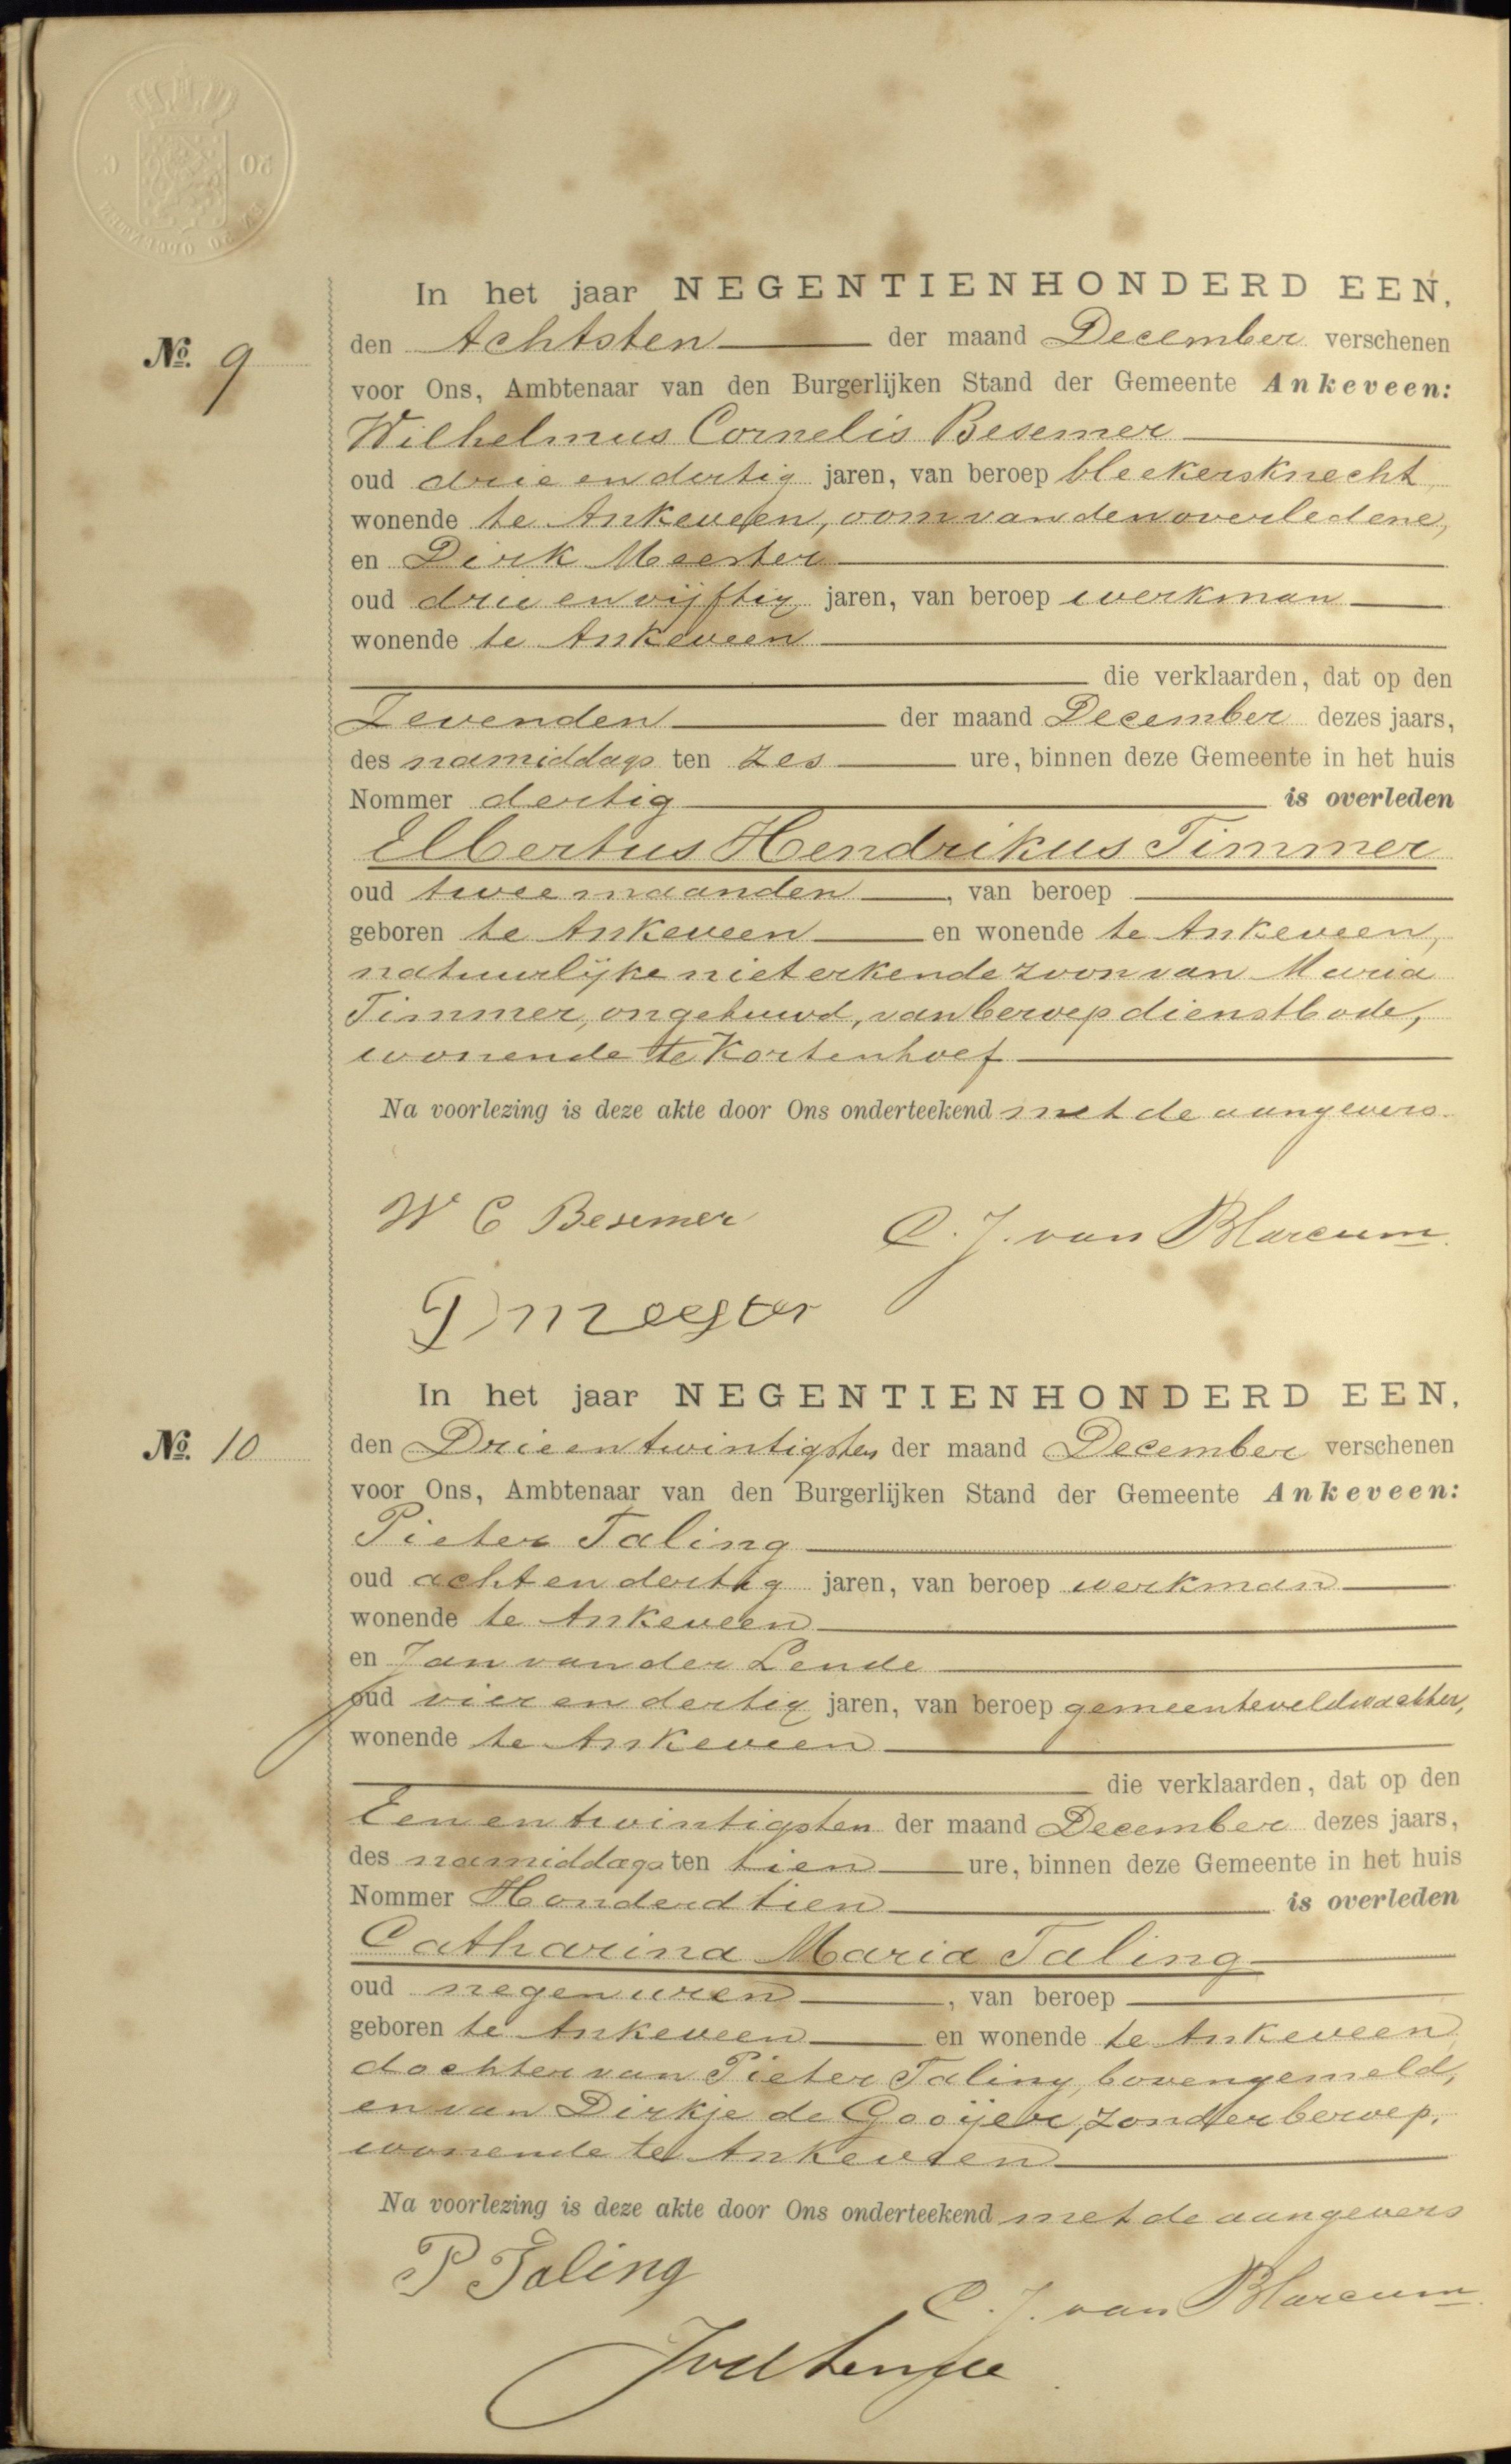 In het jaar NEGENTIENHONDERD EEN,
No. 9
den Achtsten der maand December verschenen
voor Ons, Ambtenaar van den Burgerlijken Stand der Gemeente Ankeveen:
Wilhelmus Cornelis Besemer
oud drie en dertig jaren, van beroep bleekersknecht,
wonende te Ankeveen, oom van den overledene,
en Dirk Meester
oud drie en vijftig jaren, van beroep werkman
wonende te Ankeveen
die verklaarden, dat op den
Zevenden der maand December dezes jaars,
des namiddags ten zes ure, binnen deze Gemeente in het huis
Nommer dertig is overleden
Elbertus Hendrikus Timmer
oud twee maanden, van beroep
geboren te Ankeveen en wonende te Ankeveen,
natuurlijke niet erkende zoon van Maria
Timmer, ongehuwd, van beroep dienstbode,
wonende te Kortenhoef
Na voorlezing is deze akte door Ons onderteekend met de aangevers.
W C Besemer
C. J. van Blarcum.
D meester
In het jaar NEGENTIENHONDERD EEN,
No. 10
den Drie en twintigsten der maand December verschenen
voor Ons, Ambtenaar van den Burgerlijken Stand der Gemeente Ankeveen:
Pieter Taling
oud acht en dertig jaren, van beroep werkman
wonende te Ankeveen
en Jan van der Lende
oud vier en dertig jaren, van beroep gemeenteveldwachter,
wonende te Ankeveen
die verklaarden, dat op den
Een en twintigsten der maand December dezes jaars,
des namiddags ten tien ure, binnen deze Gemeente in het huis
Nommer Honderd tien is overleden
Catharina Maria Taling
oud negen uren, van beroep
geboren te Ankeveen en wonende te Ankeveen,
dochter van Pieter Taling, bovengemeld,
en van Dirkje de Gooijer, zonder beroep,
wonende te Ankeveen
Na voorlezing is deze akte door Ons onderteekend met de aangevers
P Taling
C. J. van Blarcum.
JvdLende